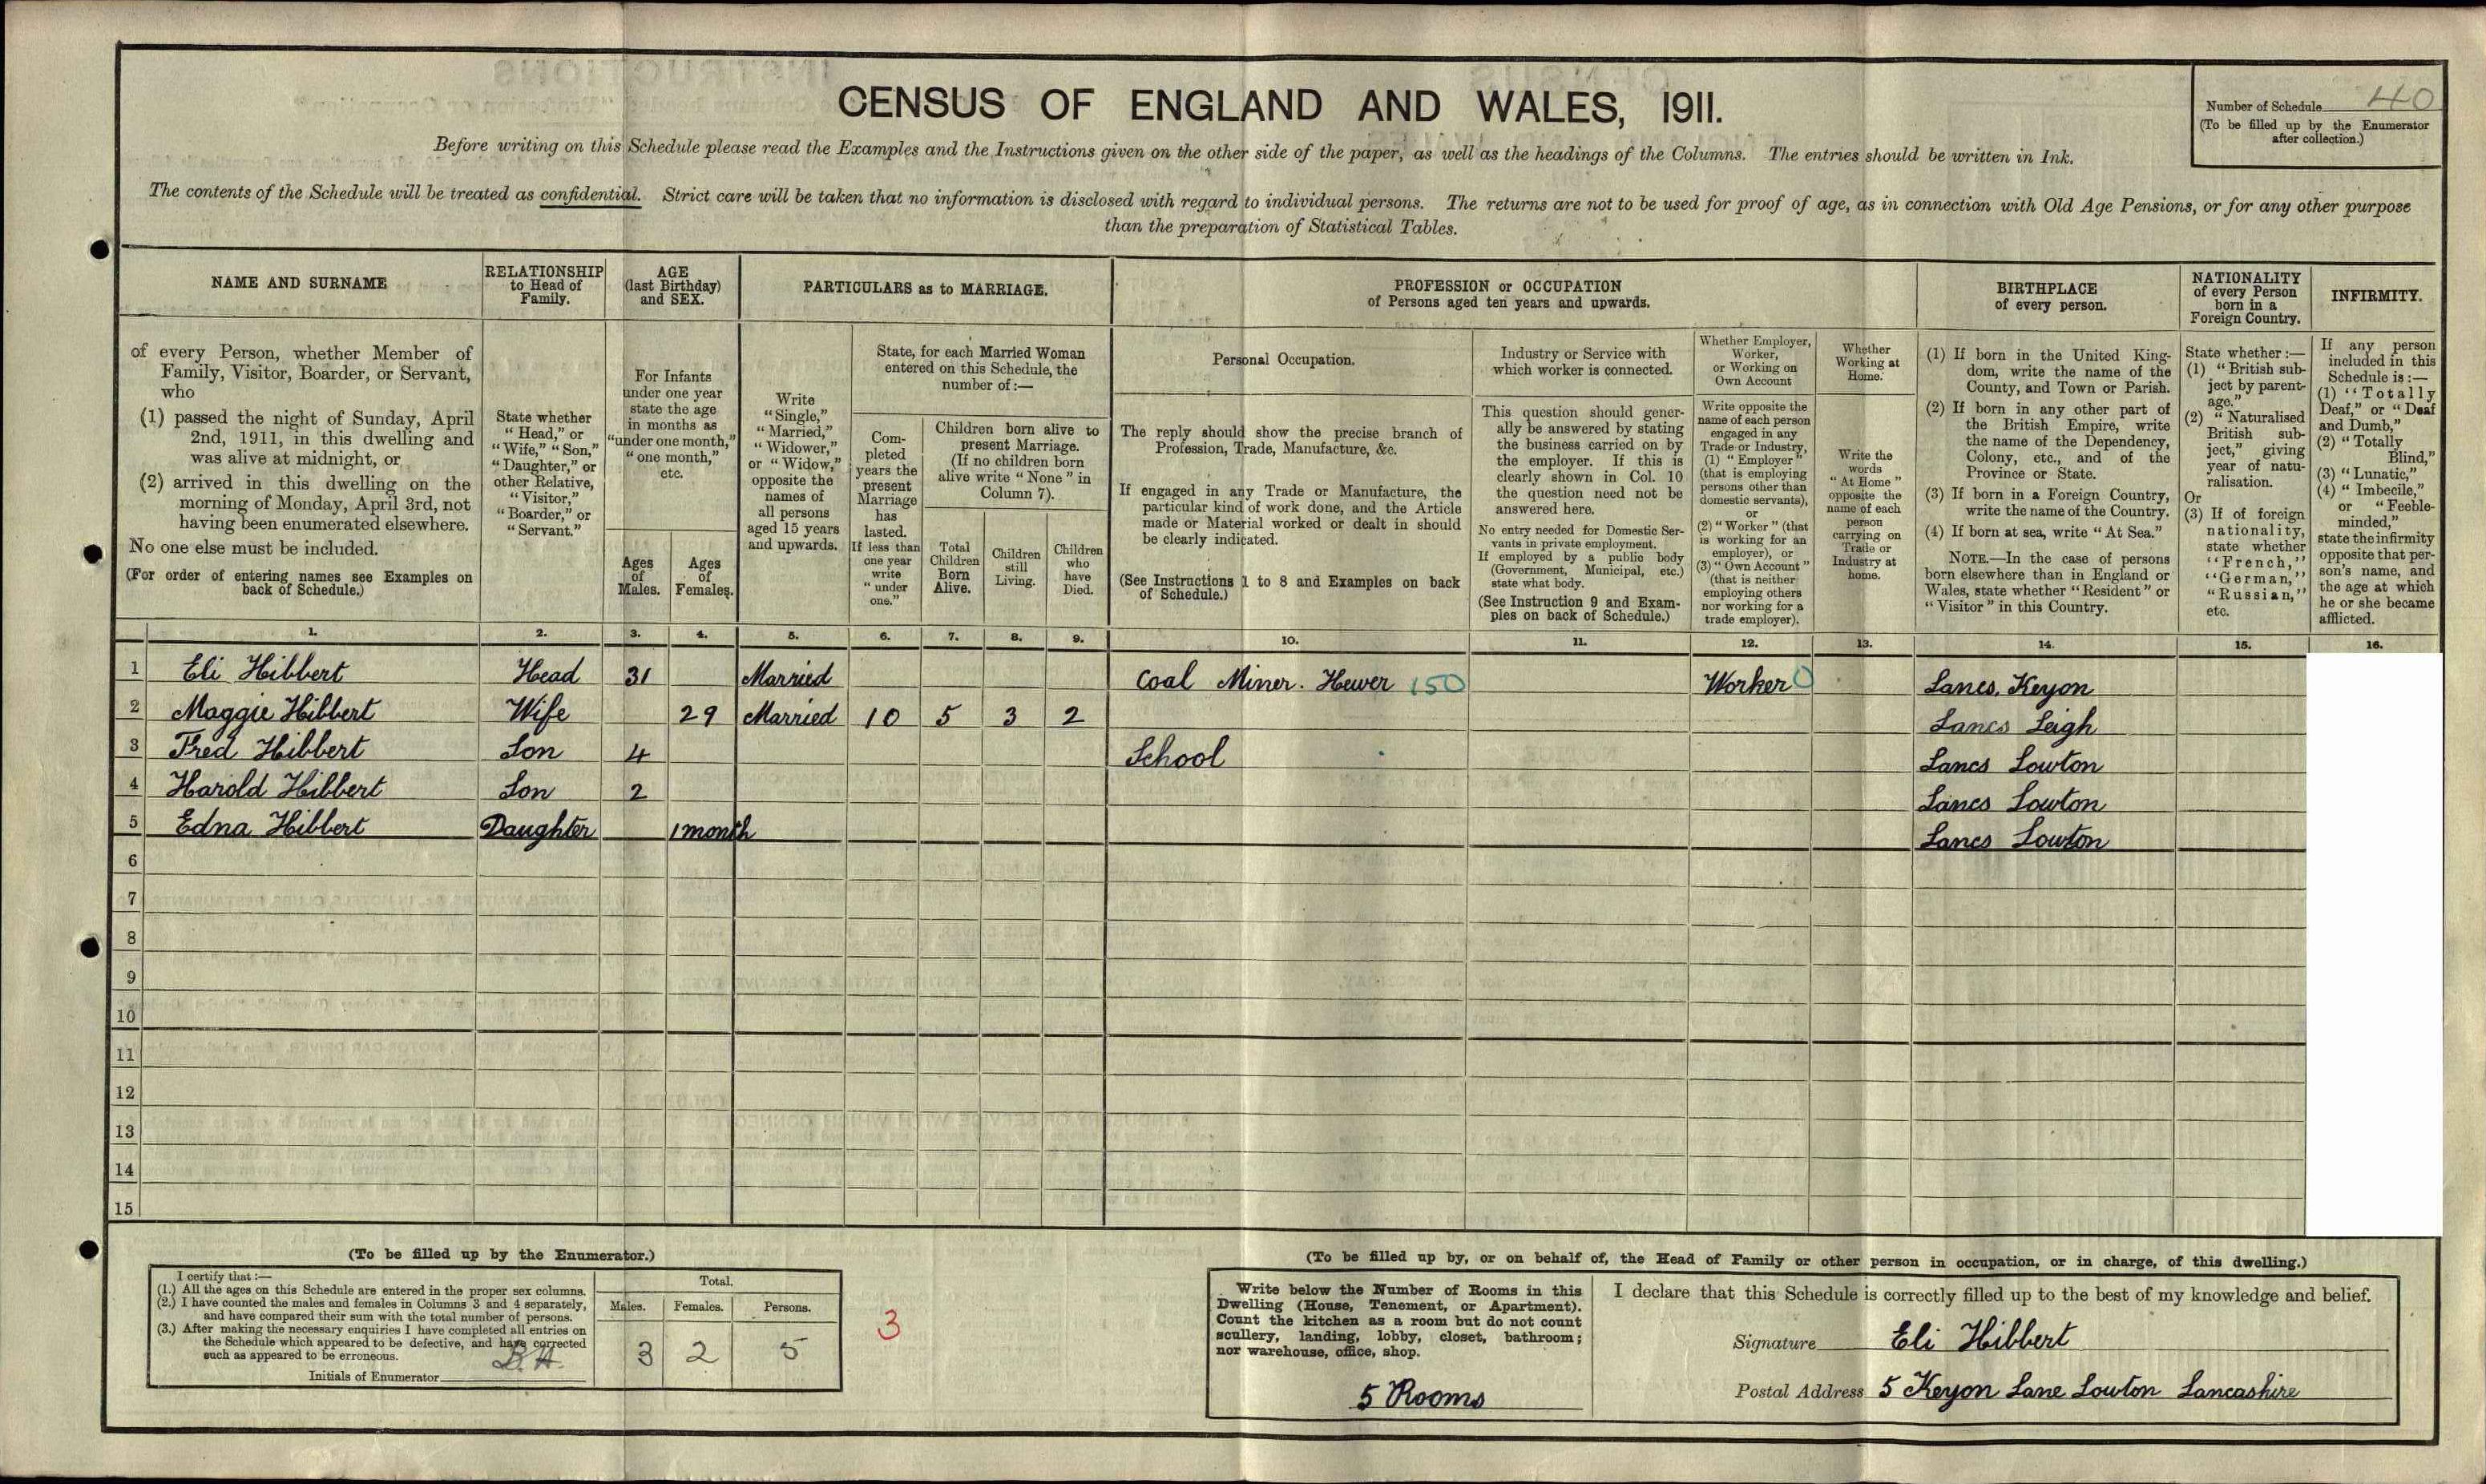 CENSUS OF ENGLAND AND WALES, 1911.
Number of Schedule 40
(To be filled up by the Enumerator
after collection.)
Before writing on this Schedule please read the Examples and the Instructions given on the other side of the paper, as well as the headings of the Columns. The entries should be written in Ink.
The contents of the Schedule will be treated as confidential. Strict care will be taken that no information is disclosed with regard to individual persons. The returns are not to be used for proof of age, as in connection with Old Age Pensions, or for any other purpose
than the preparation of Statistical Tables.
NAME AND SURNAME
of every Person, whether Member of
Family, Visitor, Boarder, or Servant,
who
(1) passed the night of Sunday, April
2nd, 1911, in this dwelling and
was alive at midnight, or
(2) arrived in this dwelling on the
morning of Monday, April 3rd, not
having been enumerated elsewhere.
No one else must be included.
(For order of entering names see Examples on
back of Schedule.)
RELATIONSHIP
to Head of
Family.
State whether
"Head," or
"Wife," "Son,"
"Daughter," or
other Relative,
"Visitor,"
"Boarder," or
"Servant."
AGE
(last Birthday)
and SEX.
For Infants
under one year
state the age
in months as
"under one month,"
"one month,"
etc.
Ages
of
Males.
Ages
of
Females.
PARTICULARS as to MARRIAGE.
Write
"Single,"
"Married,"
"Widower,"
or "Widow,"
opposite the
names of
all persons
aged 15 years
and upwards.
State, for each Married Woman
entered on this Schedule, the
number of:—
Com-
pleted
years the
present
Marriage
has
lasted.
If less than
one year
write
"under
one."
Children born alive to
present Marriage.
(If no children born
alive write "None" in
Column 7).
Total
Children
Born
Alive.
Children
still
Living.
Children
who
have
Died.
PROFESSION or OCCUPATION
of Persons aged ten years and upwards.
Personal Occupation.
The reply should show the precise branch of
Profession, Trade, Manufacture, &c.
If engaged in any Trade or Manufacture, the
particular kind of work done, and the Article
made or Material worked or dealt in should
be clearly indicated.
(See Instructions 1 to 8 and Examples on back
of Schedule.)
Industry or Service with
which worker is connected.
This question should gener-
ally be answered by stating
the business carried on by
the employer. If this is
clearly shown in Col. 10
the question need not be
answered here.
No entry needed for Domestic Ser-
vants in private employment.
If employed by a public body
(Government, Municipal, etc.)
state what body.
(See Instruction 9 and Exam-
ples on back of Schedule.)
Whether Employer,
Worker,
or Working on
Own Account
Write opposite the
name of each person
engaged in any
Trade or Industry,
(1) "Employer"
(that is employing
persons other than
domestic servants),
or
(2) "Worker" (that
is working for an
employer), or
(3) "Own Account"
(that is neither
employing others
nor working for a
trade employer).
Whether
Working at
Home.
Write the
words
"At Home"
opposite the
name of each
person
carrying on
Trade or
Industry at
home.
BIRTHPLACE
of every person.
(1) If born in the United King-
dom, write the name of the
County, and Town or Parish.
(2) If born in any other part of
the British Empire, write
the name of the Dependency,
Colony, etc., and of the
Province or State.
(3) If born in a Foreign Country,
write the name of the Country.
(4) If born at sea, write "At Sea."
NOTE.—In the case of persons
born elsewhere than in England or
Wales, state whether "Resident" or
"Visitor" in this Country.
NATIONALITY
of every Person
born in a
Foreign Country.
State whether:—
(1) "British sub-
ject by parent-
age."
(2) "Naturalised
British sub-
ject," giving
year of natu-
ralisation.
Or
(3) If of foreign
nationality,
state whether
"French,"
"German,"
"Russian,"
etc.
INFIRMITY.
If any person
included in this
Schedule is:—
(1) "Totally
Deaf," or "Deaf
and Dumb,"
(2) "Totally
Blind,"
(3) "Lunatic,"
(4) "Imbecile,"
or "Feeble-
minded,"
state the infirmity
opposite that per-
son's name, and
the age at which
he or she became
afflicted.
1. 2. 3. 4. 5. 6. 7. 8. 9. 10. 11. 12. 13. 14. 15. 16.
1 Eli Hibbert Head 31 Married Coal Miner. Hewer 150 Worker 0 Lancs. Keyon
2 Maggie Hibbert Wife 29 Married 10 5 3 2 Lancs Leigh
3 Fred Hibbert Son 4 School Lancs Lowton
4 Harold Hibbert Son 2 Lancs Lowton
5 Edna Hibbert Daughter 1 month Lancs Lowton
6
7
8
9
10
11
12
13
14
15
(To be filled up by the Enumerator.)
I certify that:—
(1.) All the ages on this Schedule are entered in the proper sex columns.
(2.) I have counted the males and females in Columns 3 and 4 separately,
and have compared their sum with the total number of persons.
(3.) After making the necessary enquiries I have completed all entries on
the Schedule which appeared to be defective, and have corrected
such as appeared to be erroneous.
Initials of Enumerator
Total.
Males. Females. Persons.
3 2 5
3
(To be filled up by, or on behalf of, the Head of Family or other person in occupation, or in charge, of this dwelling.)
Write below the Number of Rooms in this
Dwelling (House, Tenement, or Apartment).
Count the kitchen as a room but do not count
scullery, landing, lobby, closet, bathroom;
nor warehouse, office, shop.
5 Rooms
I declare that this Schedule is correctly filled up to the best of my knowledge and belief.
Signature Eli Hibbert
Postal Address 5 Keyon Lane Lowton Lancashire